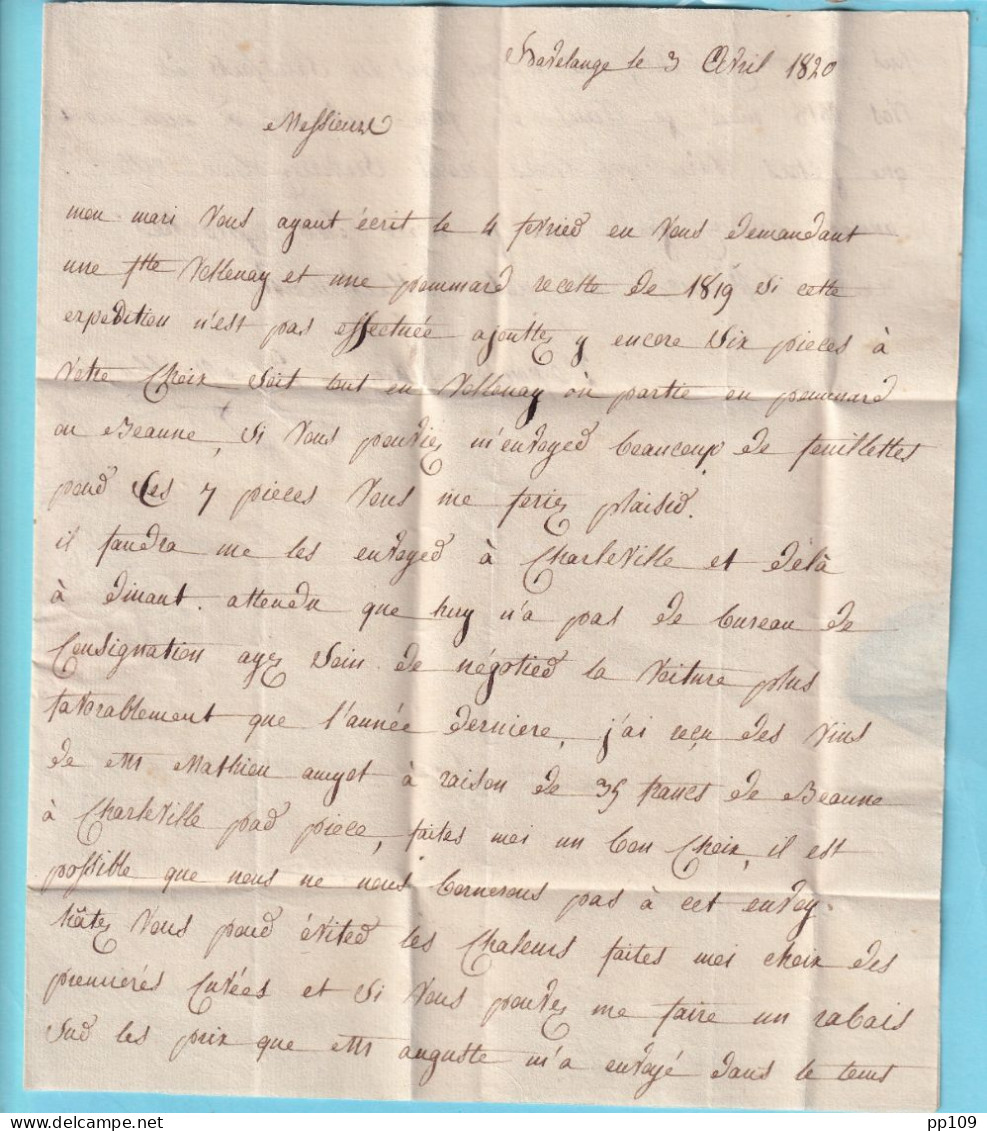 havelange le 3 Avril 1820
Messieurs
mon mari Vous ayant écrit le 4 fevrier en Vous demandant
une ftte Vollenay et une pommard recette de 1819 Si cette
expedition n'est pas effectuée ajouttez y encore Six pieces à
Votre Choix Soit tout en Vollenay où partie en pommard
ou Beaune, Si Vous pouviez m'envoyer beaucoup de feuillettes
pour Ces 7 pieces Vous me feriez plaisir.
il faudra me les envoyer à CharleVille et délà
à dinant. attendu que huy n'a pas de bureau de
Consignation ayez Soin de négotier la Voiture plus
favorablement que l'année derniere, j'ai reçu des Vins
de Mr Mathieu amyot à raison de 35 francs de Beaune
à CharleVille par piece, faites moi un bon Choix, il est
possible que nous ne nous bornerons pas à cet envoy.
hâtez Vous pour éviter les Chaleurs faites moi choix des
premierés Cuvées et Si Vous pouvez me faire un rabais
Sur les prix que Mr auguste m'a envoyé dans le tems
pp109